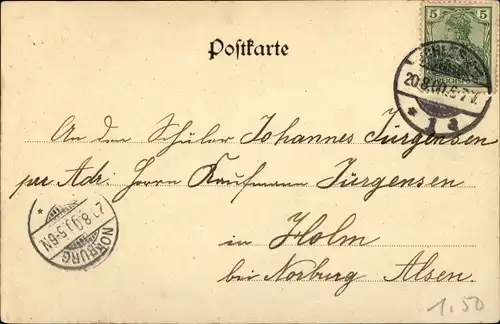 5 5
Postkarte
20.8.00.6-7N.
* 1 a
An den Schüler Johannes Jürgensen
per Adr: Herrn Kaufmann Jürgensen
in Holm
bei Norburg Alsen.
NORBURG
8.00.5-6N
*
1.50